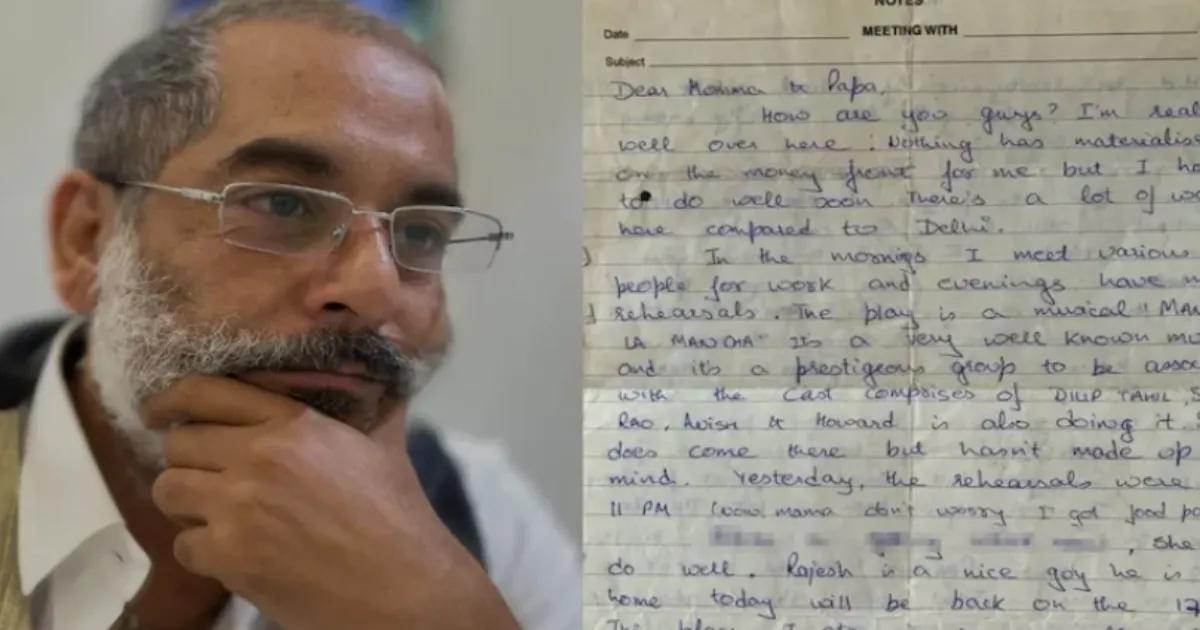 NOTES
Date MEETING WITH
Subject
Dear Momma & Papa,
How are you guys? I'm real
well over here. Nothing has materialis
on the money front for me but I ho
to do well soon There's a lot of wo
here compared to Delhi.
In the mornings I meet various
people for work and evenings have m
rehearsals. The play is a musical "MAN
LA MANCHA" It's a very well known mu
and it's a prestigeous group to be assoc
with the cast comprises of DILIP TAHIL, S
RAO, Avish & Howard is also doing it.
does come there but hasn't made up
mind. Yesterday, the rehearsals were
11 PM (wow mama don't worry I got food pa
, she
do well. Rajesh is a nice guy he is
home today will be back on the 17
This place I